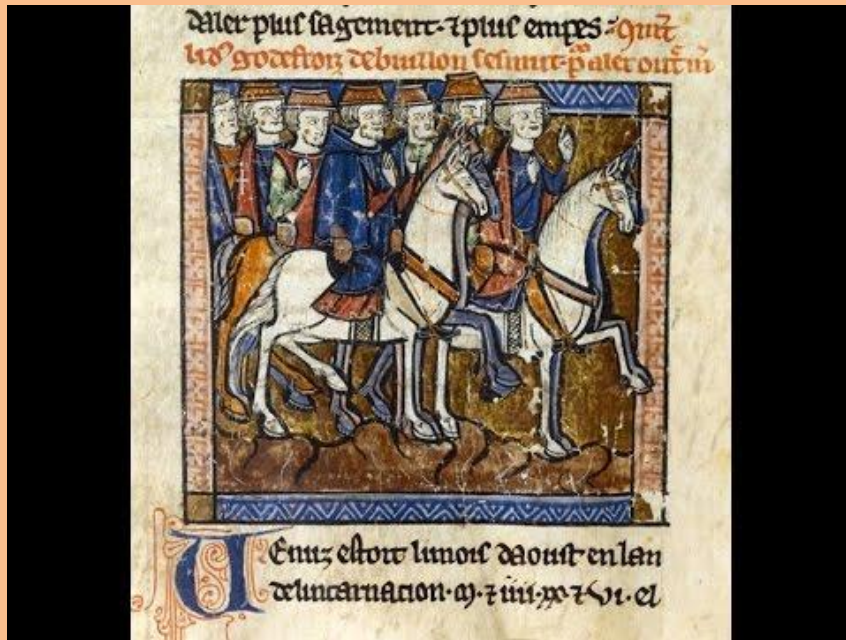 daler plus sagement · ⁊ plus empes · Quāt
li dꝰ godefroiz de buillon sesmut p̄ aler
UEnuz estoit li mois daoust en lan
delincarnacion · m · ⁊ iiii · xx · ⁊ xvi · el